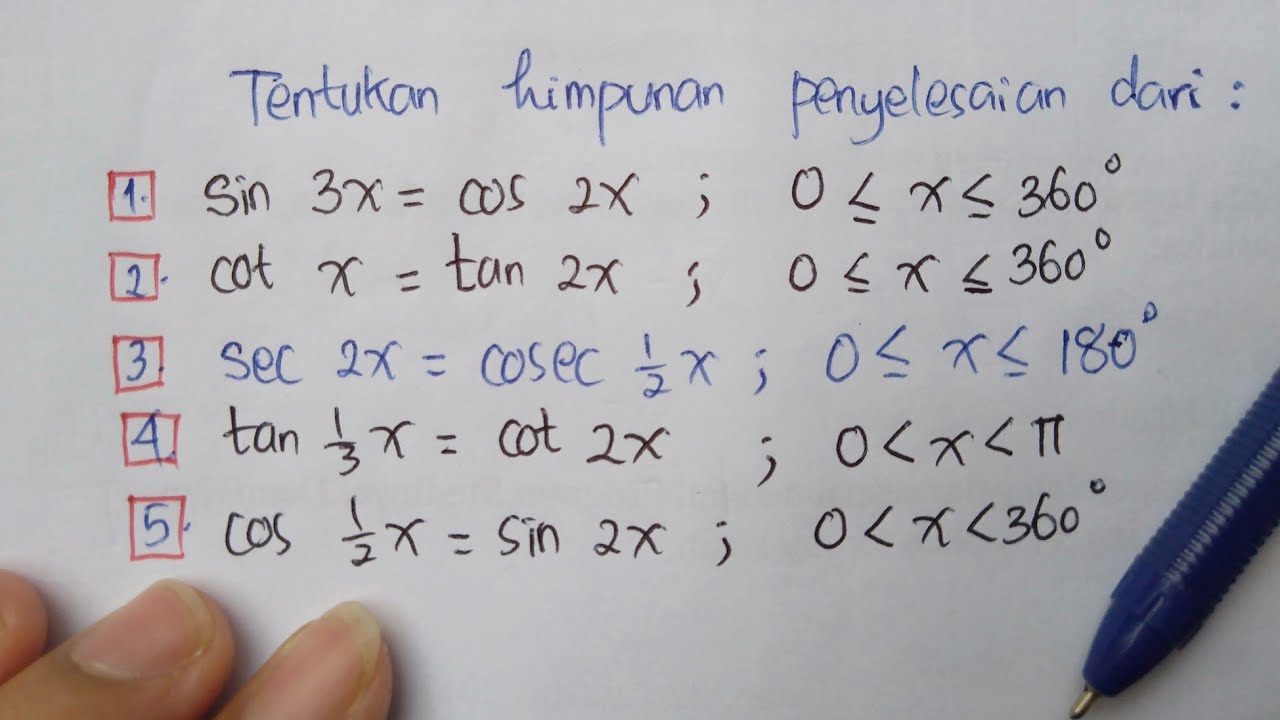 Tentukan himpunan penyelesaian dari :
1. sin 3x = cos 2x ; 0 ≤ x ≤ 360°
2. cot x = tan 2x ; 0 ≤ x ≤ 360°
3. sec 2x = cosec 1/2 x ; 0 ≤ x ≤ 180°
4. tan 1/3 x = cot 2x ; 0 < x < π
5. cos 1/2 x = sin 2x ; 0 < x < 360°